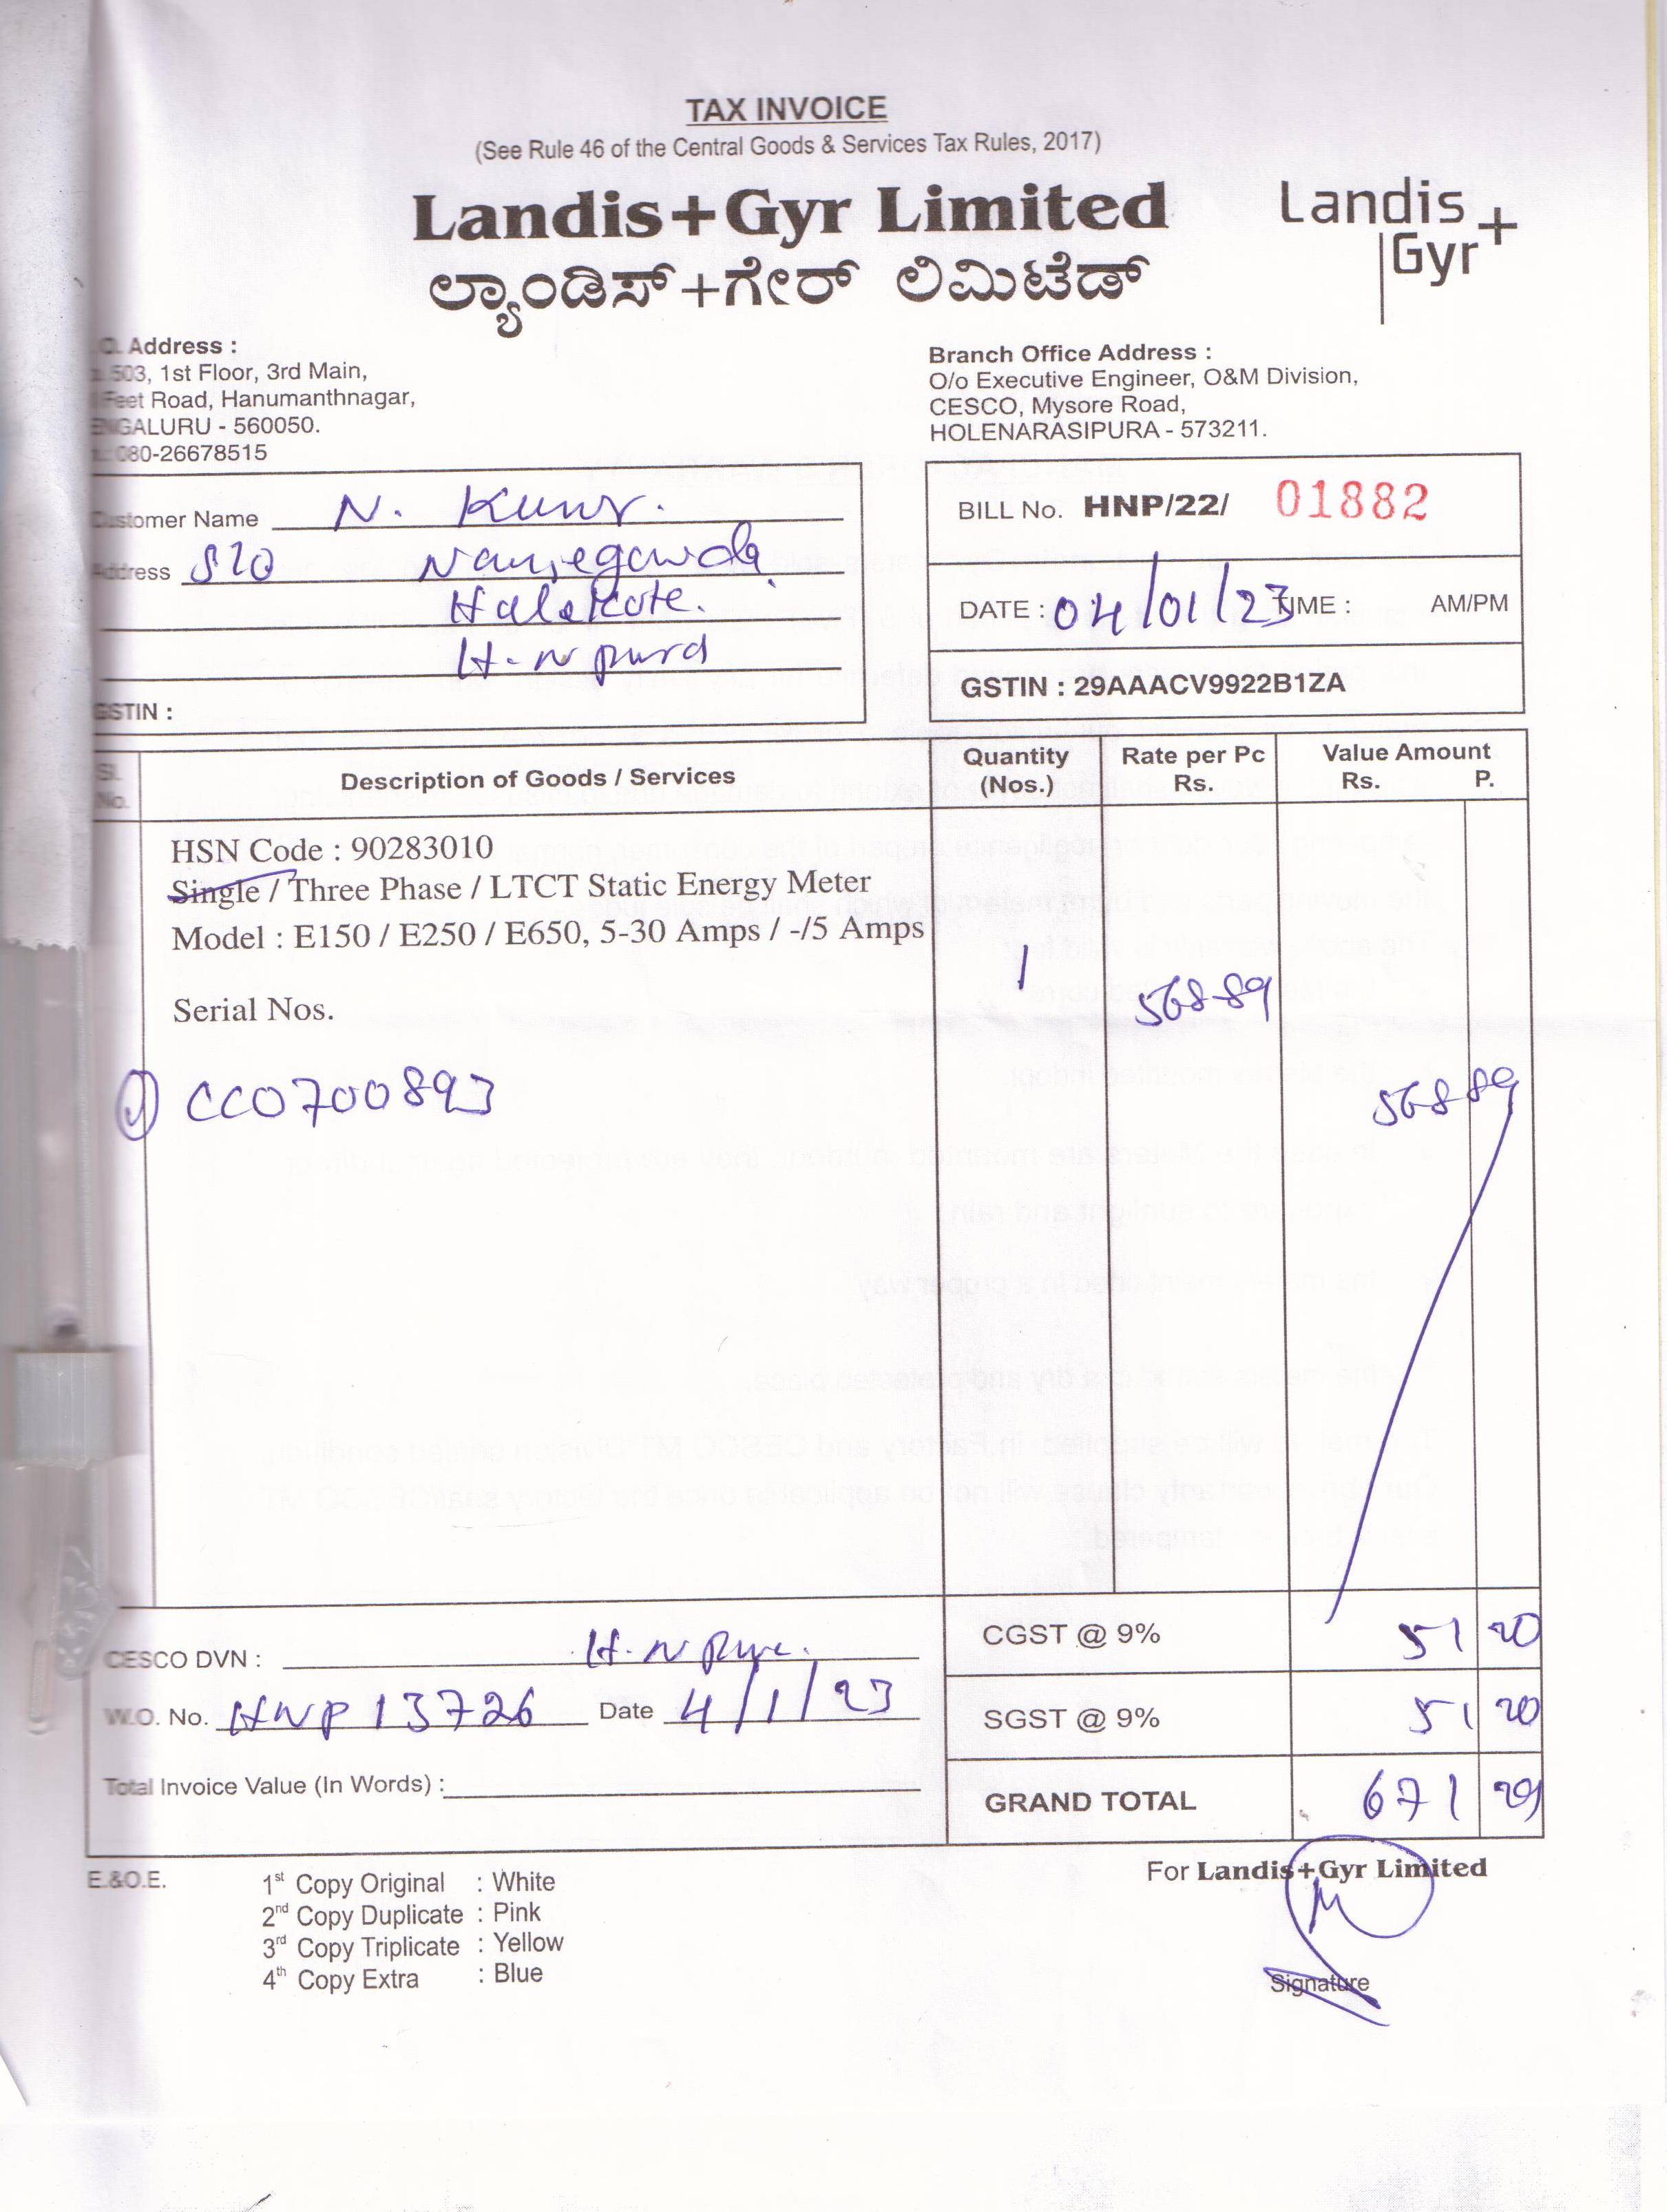 TAX INVOICE
(See Rule 46 of the Central Goods & Services Tax Rules, 2017)
Landis+Gyr Limited
ಲ್ಯಾಂಡಿಸ್+ಗೇರ್ ಲಿಮಿಟೆಡ್
Landis
Gyr+
Address :
503, 1st Floor, 3rd Main,
Feet Road, Hanumanthnagar,
ENGALURU - 560050.
080-26678515
Branch Office Address :
O/o Executive Engineer, O&M Division,
CESCO, Mysore Road,
HOLENARASIPURA - 573211.
Customer Name N.
Address S/O
Halekote.
H-N pura
GSTIN :
BILL No. HNP/22/ 01882
DATE : 04/01/23 TIME : AM/PM
GSTIN : 29AAACV9922B1ZA
Sl. No. Description of Goods / Services Quantity (Nos.) Rate per Pc Rs. Value Amount Rs. P.
HSN Code : 90283010
Single / Three Phase / LTCT Static Energy Meter
Model : E150 / E250 / E650, 5-30 Amps / -/5 Amps
1 568-89
Serial Nos.
CC0700893 568 89
CESCO DVN : H-N
W.O. No. HNP 13726 Date 4/1/23
Total Invoice Value (In Words) :
CGST @ 9% 51 20
SGST @ 9% 51 20
GRAND TOTAL 671 29
E.&O.E.
1st Copy Original : White
2nd Copy Duplicate : Pink
3rd Copy Triplicate : Yellow
4th Copy Extra : Blue
For Landis+Gyr Limited
Signature